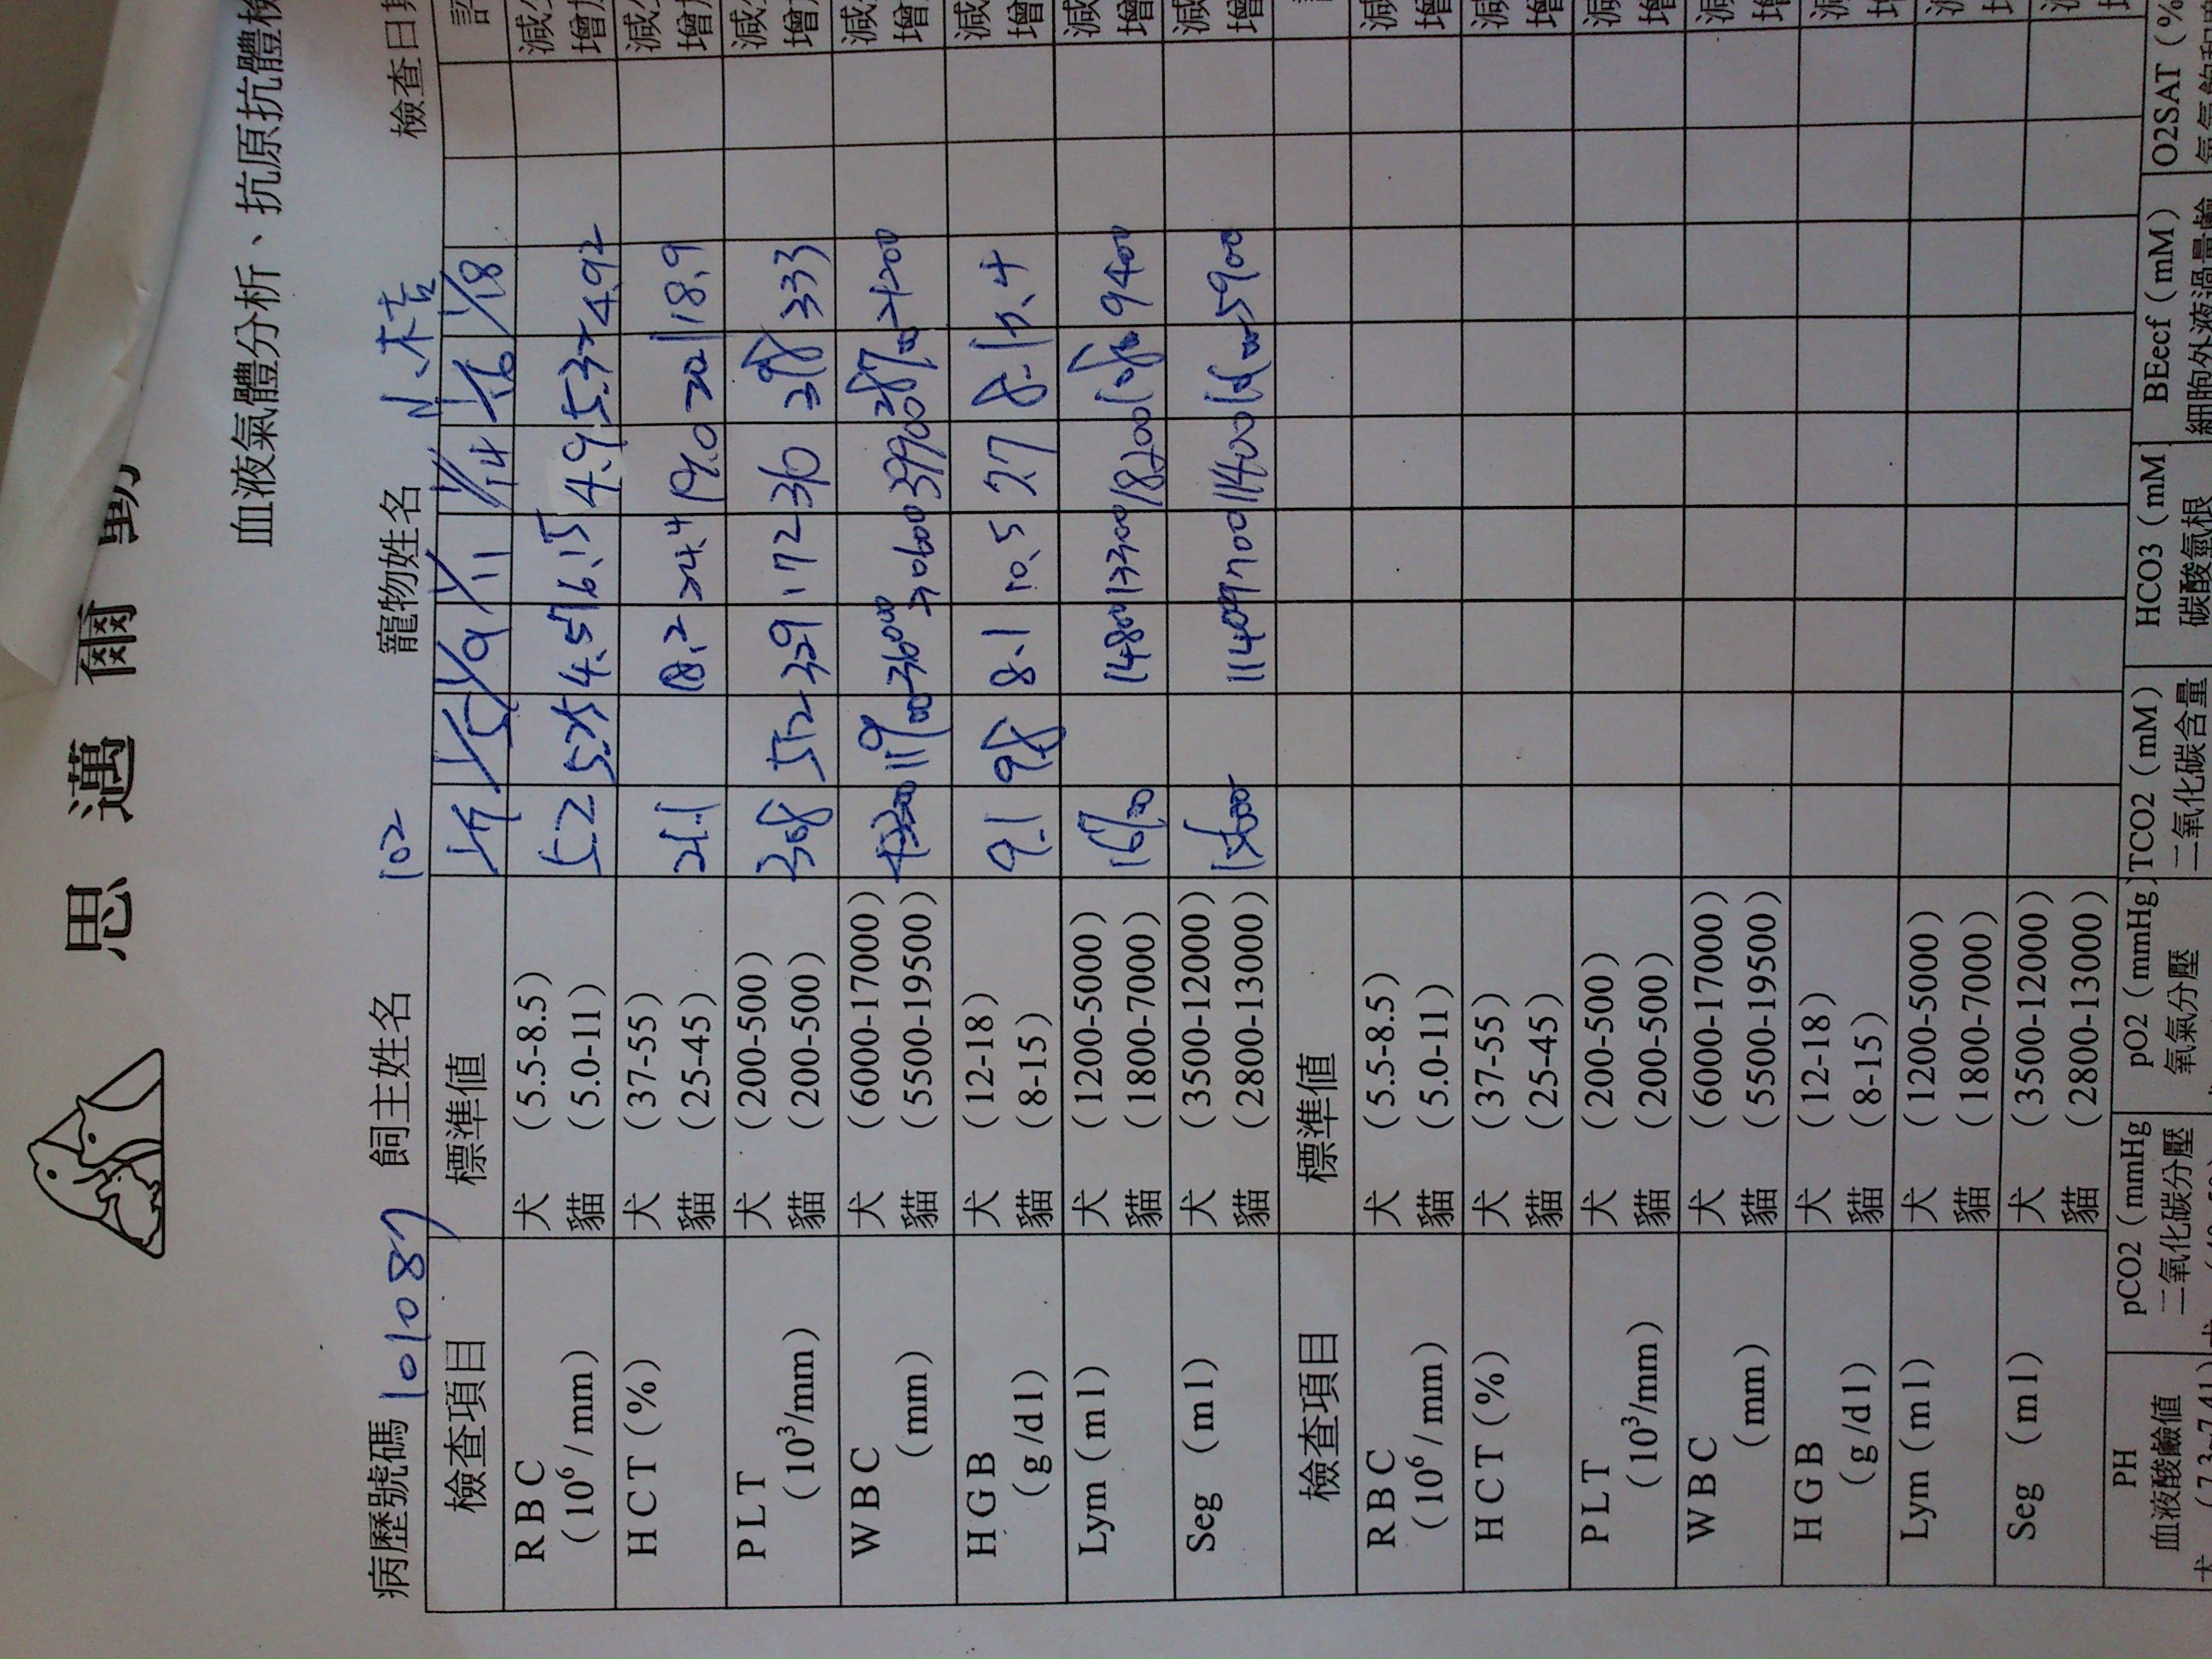 思邁爾動
血液氣體分析、抗原抗體檢
病歷號碼 101087 飼主姓名 102 寵物姓名 檢查日期
檢查項目 標準值 1/5 1/9 1/11 1/14 1/16 1/18
RBC 犬 (5.5-8.5) 減少
(10⁶/mm) 貓 (5.0-11) 5.2 5.25 4.57 6.15 4.9 5.37 4.92 增加
HCT (%) 犬 (37-55) 減少
貓 (25-45) 21.1 18.2 24.4 19.0 20.1 18.9 增加
PLT 犬 (200-500) 減
(10³/mm) 貓 (200-500) 308 512 329 172 236 298 333 增
WBC 犬 (6000-17000) 減
(mm) 貓 (5500-19500) 36000 30600 39900 增
HGB 犬 (12-18) 減
(g/dl) 貓 (8-15) 9.1 9.8 8.1 10.5 7.7 8.1 增
Lym (ml) 犬 (1200-5000) 減
貓 (1800-7000) 14800 13300 18200 9400 增
Seg (ml) 犬 (3500-12000) 減
貓 (2800-13000) 11400 9700 11400 5900 增
檢查項目 標準值
RBC 犬 (5.5-8.5) 減
(10⁶/mm) 貓 (5.0-11) 增
HCT (%) 犬 (37-55) 減
貓 (25-45) 增
PLT 犬 (200-500) 減
(10³/mm) 貓 (200-500) 增
WBC 犬 (6000-17000) 減
(mm) 貓 (5500-19500) 增
HGB 犬 (12-18)
(g/dl) 貓 (8-15)
Lym (ml) 犬 (1200-5000)
貓 (1800-7000)
Seg (ml) 犬 (3500-12000)
貓 (2800-13000)
PH pCO2 (mmHg) pO2 (mmHg) TCO2 (mM) HCO3 (mM BEecf (mM) O2SAT (%
血液酸鹼值 二氧化碳分壓 氧氣分壓 二氧化碳含量 碳酸氫根 細胞外液過量鹼